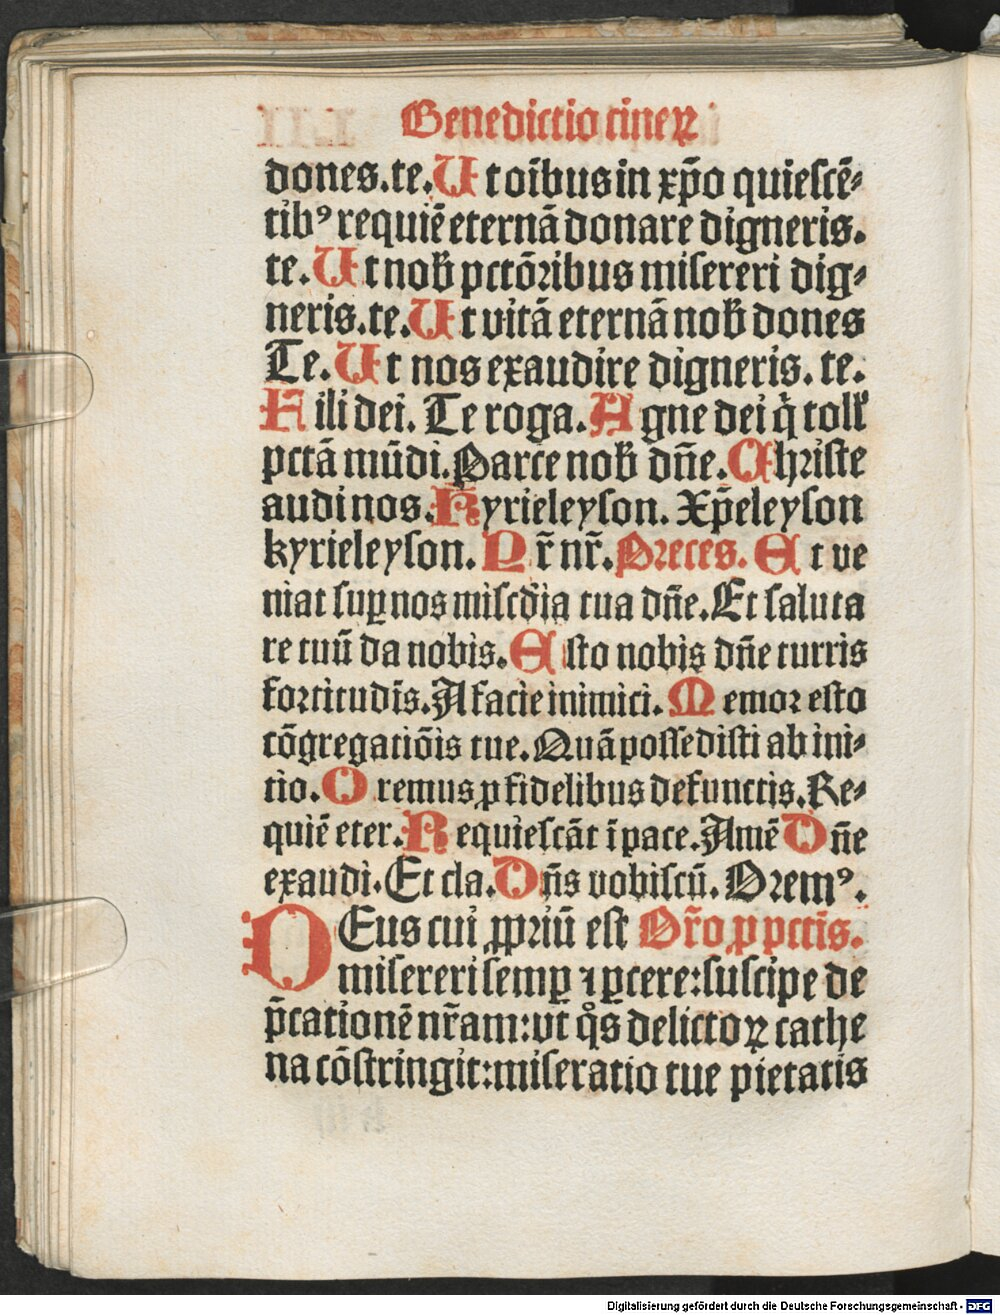 Benedictio cineꝝ
dones.te.Ut oı̄bus in xp̄o quiescē⸗
tibꝰ requiē eternā donare digneris.
te.Ut nob̄ pctōribus misereri dig⸗
neris.te.Ut vitā eternā nob̄ dones
Te.Ut nos exaudire digneris. te.
Fili dei. Te roga.Agne dei q̄ toll'
pctā mūdi.Parce nob̄ dn̄e.Christe
audi nos.Kyrieleyson. Xp̄eleyson
kyrieleyson.Pr̄ nr̄.Preces. Et ve
niat suꝑ nos misc̄dia tua dn̄e.Et saluta
re tuū da nobis.Esto nobis dn̄e turris
fortitudīs.A facie inimici.Memor esto
cōgregatiōis tue.Quā possedisti ab ini⸗
tio.Oremus ꝓ fidelibus defunctis.Re⸗
quiē eter.Requiescāt ī pace.Amē Dn̄e
exaudi.Et cla.Dn̄s vobiscū. Oremꝰ.
DEus cui ꝓpriū est Or̄o ꝓ pctīs.
misereri semꝑ ⁊ ꝑcere:suscipe de
p̄cationē nr̄am:vt qͦs delictoꝝ cathe
na cōstringit:miseratio tue pietatis
Digitalisierung gefördert durch die Deutsche Forschungsgemeinschaft - DFG